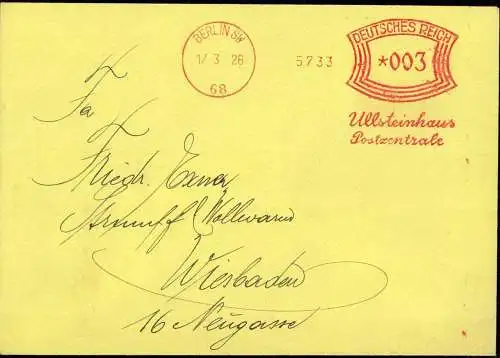 BERLIN SW
17 3 28
68
5733
DEUTSCHES REICH
*003
Ullsteinhaus
Postzentrale
Fa
Friedr. Exner
Strumpf & Wollwaren
Wiesbaden
16 Neugasse